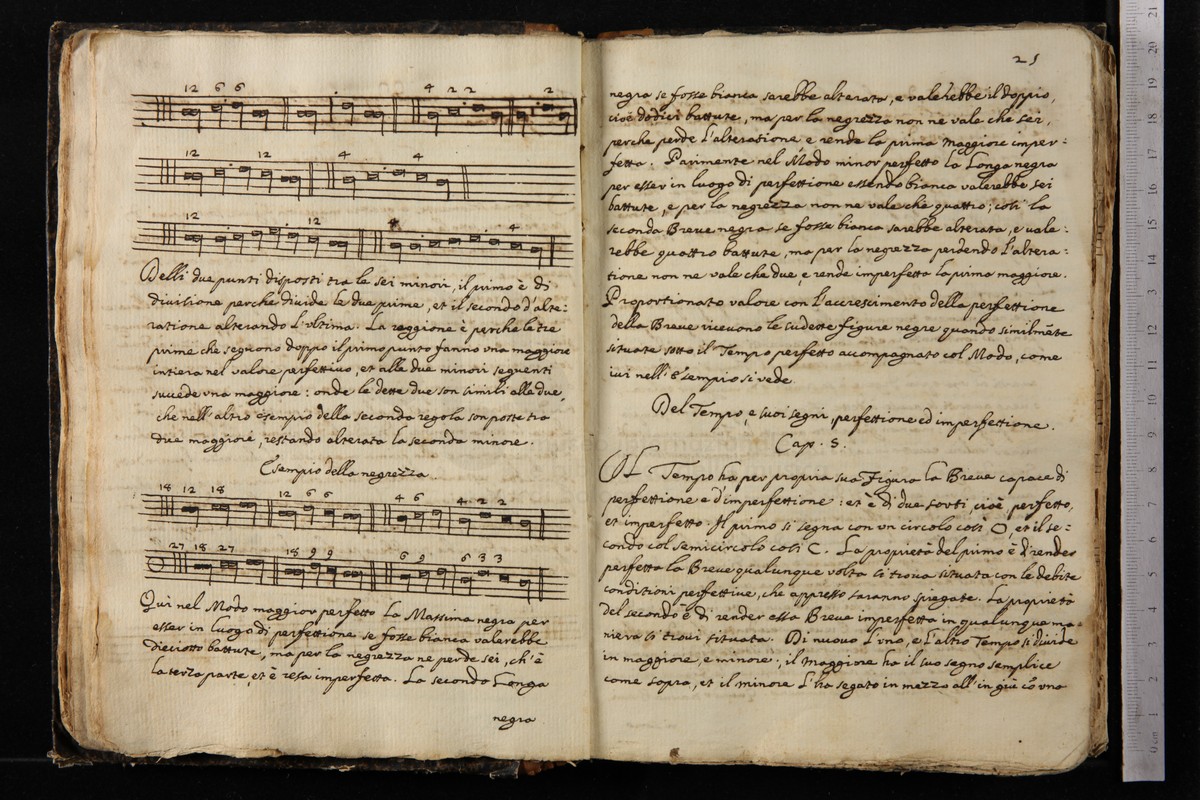 12 6 6 4 2 2 2
12 12 4 4
12 12 4 4
Delli due punti disposti tra le sei minori, il primo è di
divisione perche divide le due prime, et il secondo d'alte:
ratione alterando l'vltima. La raggione è perche le tre
prime che seguono doppo il primo punto fanno vna maggiore
intiera nel valore perfettivo, et alle due minori seguenti
succede vna maggiore: onde le dette due son simili alle due,
che nell'altro esempio della seconda regola son poste tra
due maggiori, restando alterata la seconda minore.
Esempio della negrezza
18 12 18 12 6 6 4 6 4 2 2
27 18 27 18 9 9 6 9 6 3 3
Qui nel Modo maggior perfetto la Massima negra per
esser in luogo di perfettione se fosse bianca valerebbe
dieciotto battute, ma per la negrezza ne perde sei, ch'è
la terza parte, et è resa imperfetta. La seconda Longa
negra
25
negra se fosse bianca sarebbe alterata, e valerebbe il doppio,
cioè dodici battute, ma per la negrezza non ne vale che sei,
perche perde l'alteratione e rende la prima maggiore imper:
fetta. Parimente nel Modo minor perfetto la Longa negra
per esser in luogo di perfettione essendo bianca valerebbe sei
battute, e per la negrezza non ne vale che quattro; così la
seconda Breve negra se fosse bianca sarebbe alterata, e vale:
rebbe quattro battute, ma per la negrezza perdendo l'altera:
tione non ne vale che due, e rende imperfetta la prima maggiore.
Proportionato valore con l'accrescimento della perfettione
della Breve ricevono le sudette figure negre quando similmẽte
situate sotto il Tempo perfetto accompagnato col Modo, come
ivi nell'Esempio si vede
Del Tempo, e suoi segni, perfettione ed imperfettione.
Cap. 5.
Il Tempo ha per propria sua Figura la Breve capace di
perfettione e d'imperfettione: et è di due sorti cioè perfetto,
et imperfetto. Il primo si segna con vn circolo così O et il se:
condo col semicircolo così C. La proprietà del primo è di render
perfetta la Breve qualunque volta si trova situata con le debite
conditioni perfettive, che appresso saranno spiegate. La proprietà
del secondo è di render essa Breve imperfetta in qualunque ma:
niera si trovi situata. Di nuovo l'vno, e l'altro Tempo si divide
in maggiore, e minore, il maggiore ha il suo segno semplice
come sopra, et il minore l'ha segato in mezzo all'in giù cõ vna